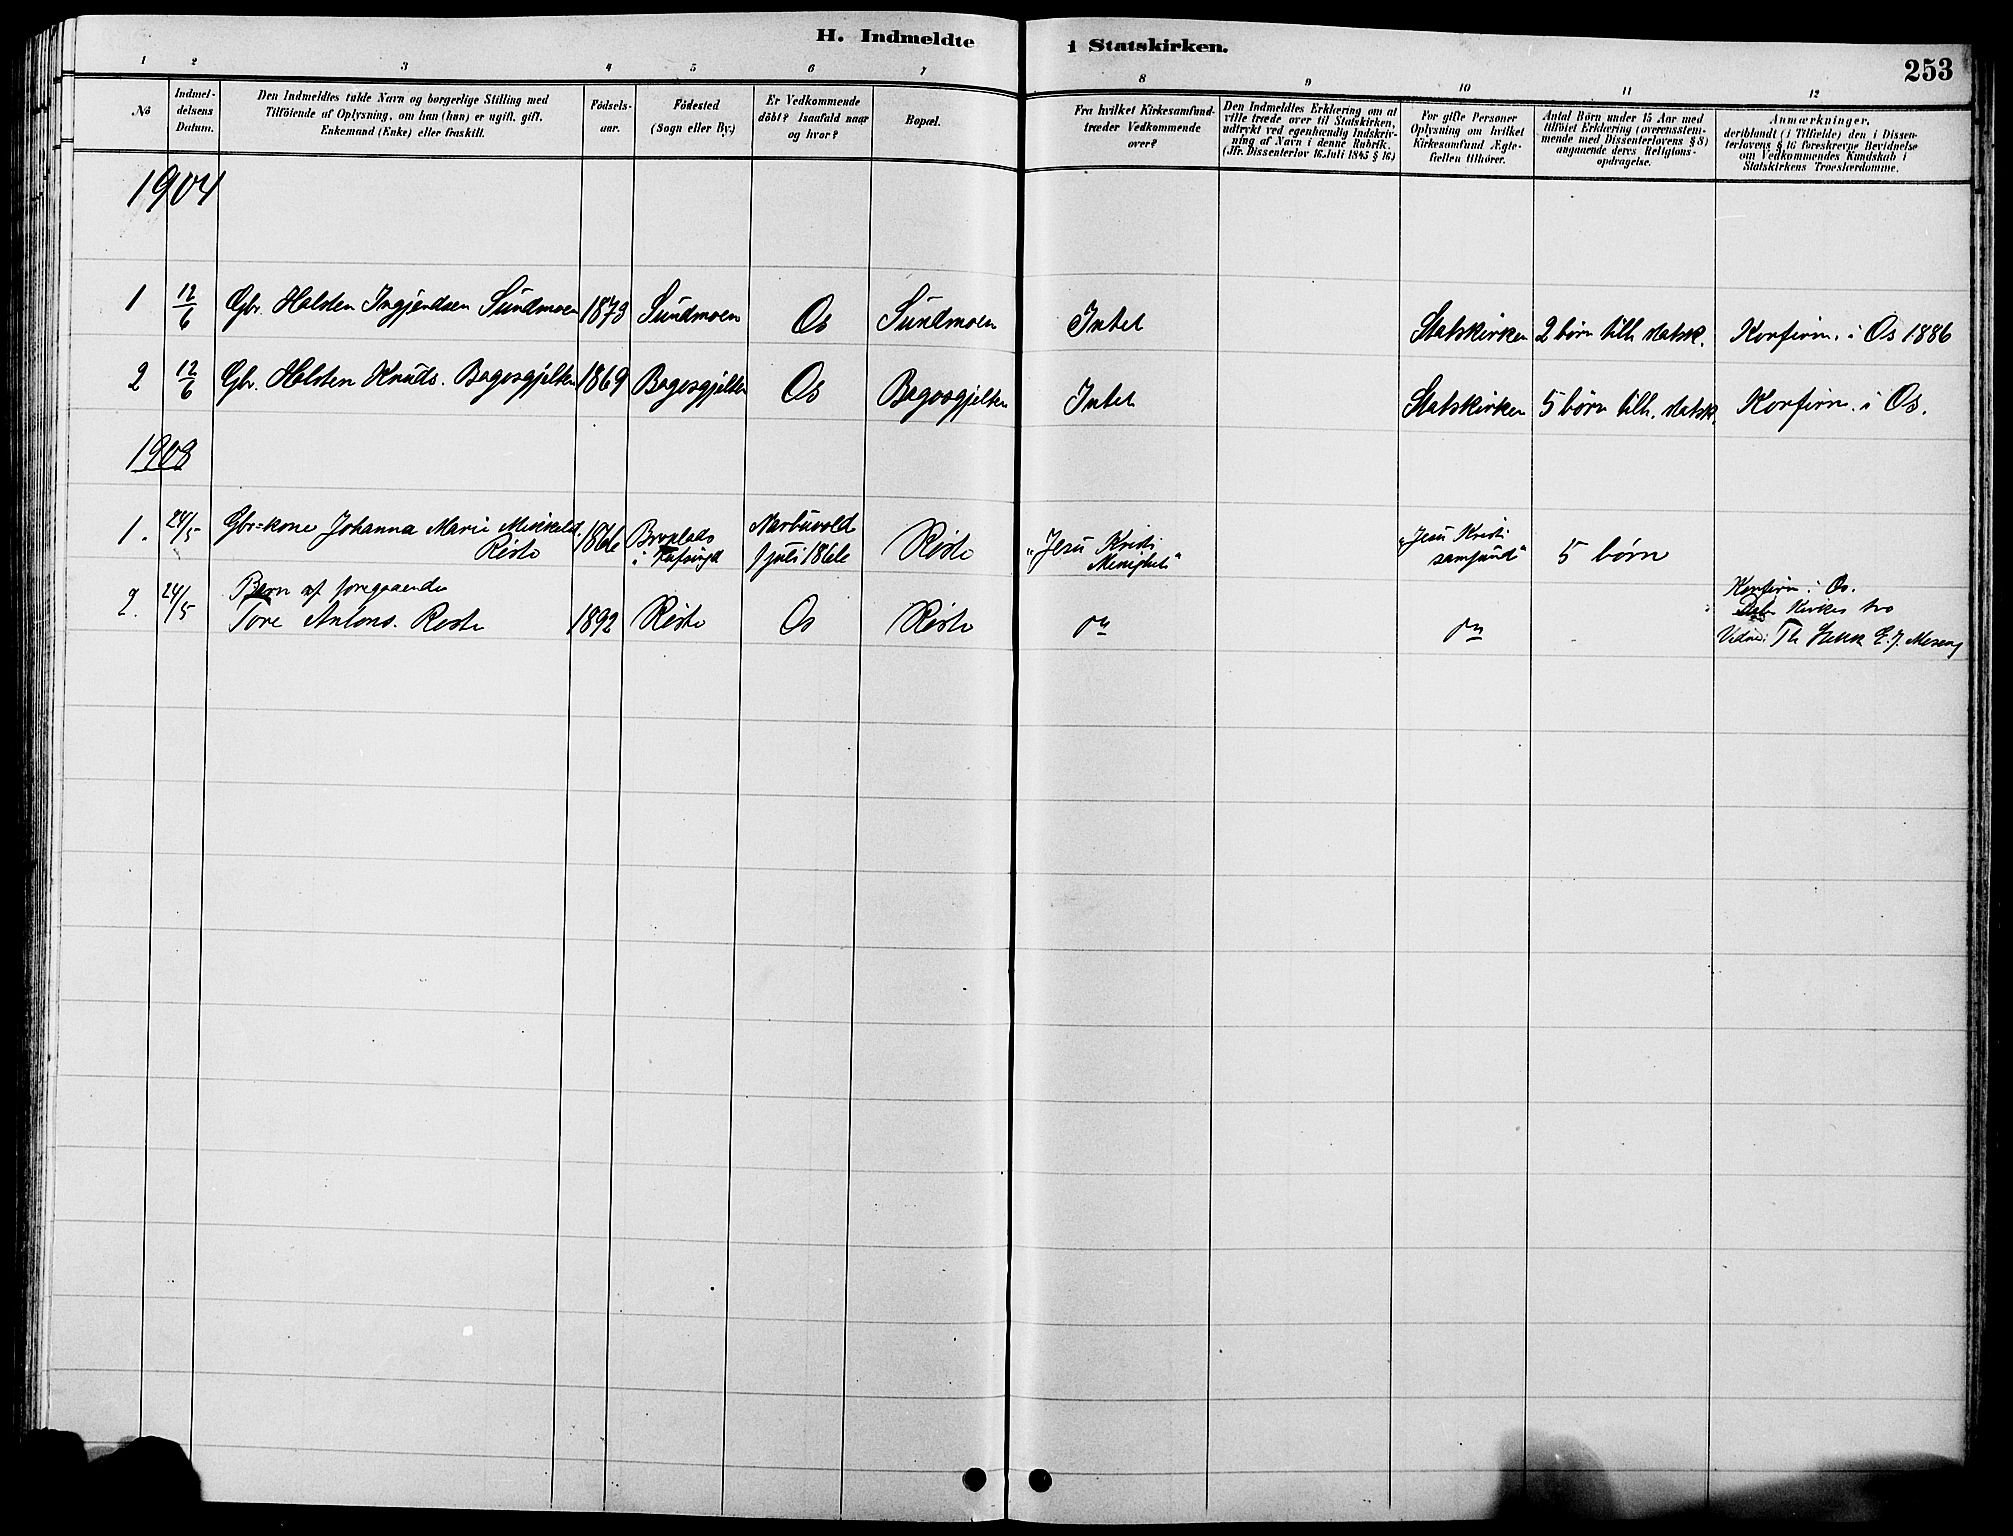 H. Indmeldte i Statskirken.
253
1 2 3 4 5 6 7 8 9 10 11 12
No
Indmel-
delsens
Datum.
Den Indmeldtes fulde Navn og borgerlige Stilling med
Tilföiende af Oplysning, om han (hun) er ugift, gift,
Enkemand (Enke) eller fraskilt.
Födsels-
aar.
Födested
(Sogn eller By.)
Er Vedkommende
döbt? Isaafald naar
og hvor?
Bopæl.
Fra hvilket Kirkesamfund
træder Vedkommende
over?
Den Indmeldtes Erklæring om at
ville træde over til Statskirken,
udtrykt ved egenhændig Indskriv-
ning af Navn i denne Rubrik.
(Jfr. Dissenterlov 16. Juli 1845 § 16.)
For gifte Personer
Oplysning om hvilket
Kirkesamfund Ægte-
fællen tilhörer.
Antal Börn under 15 Aar med
tilföiet Erklæring (overensstem-
mende med Dissenterlovens § 8)
angaaende deres Religions-
opdragelse.
Anmærkninger,
deriblandt (i Tilfælde) den i Dissen-
terlovens § 16 foreskrevne Bevidnelse
om Vedkommendes Kundskab i
Statskirkens Troeslærdomme.
1904
1 12/6 Gbr. Halsten Ingjendsen Sundmoen 1873 Sundmoen Os Sundmoen Intet Statskirken 2 börn tilh. statsk. Konfirm. i Os 1886
2 12/6 Gbr. Halsten Knuds. Bagosgjelten 1869 Bagosgjelten Os Bagosgjelten Intet Statskirken 5 börn tilh. statsk. Konfirm. i Os.
1908
1. 24/5 Gbr.=kone Johanna Marie Mikkelsd.
Röste 1866 Broplads
i Tufsingd Narbuvold
1 juli 1866 Röste "Jesu Kristi
Menighet" "Jesu Kristi
samfund" 5 börn
2. 24/5 Barn af foregaaende
Tore Antons. Röste 1892 Röste Os Röste do do
Konfirm i Os.
Kirkes tro
Vidne: Th E. J. Moseng